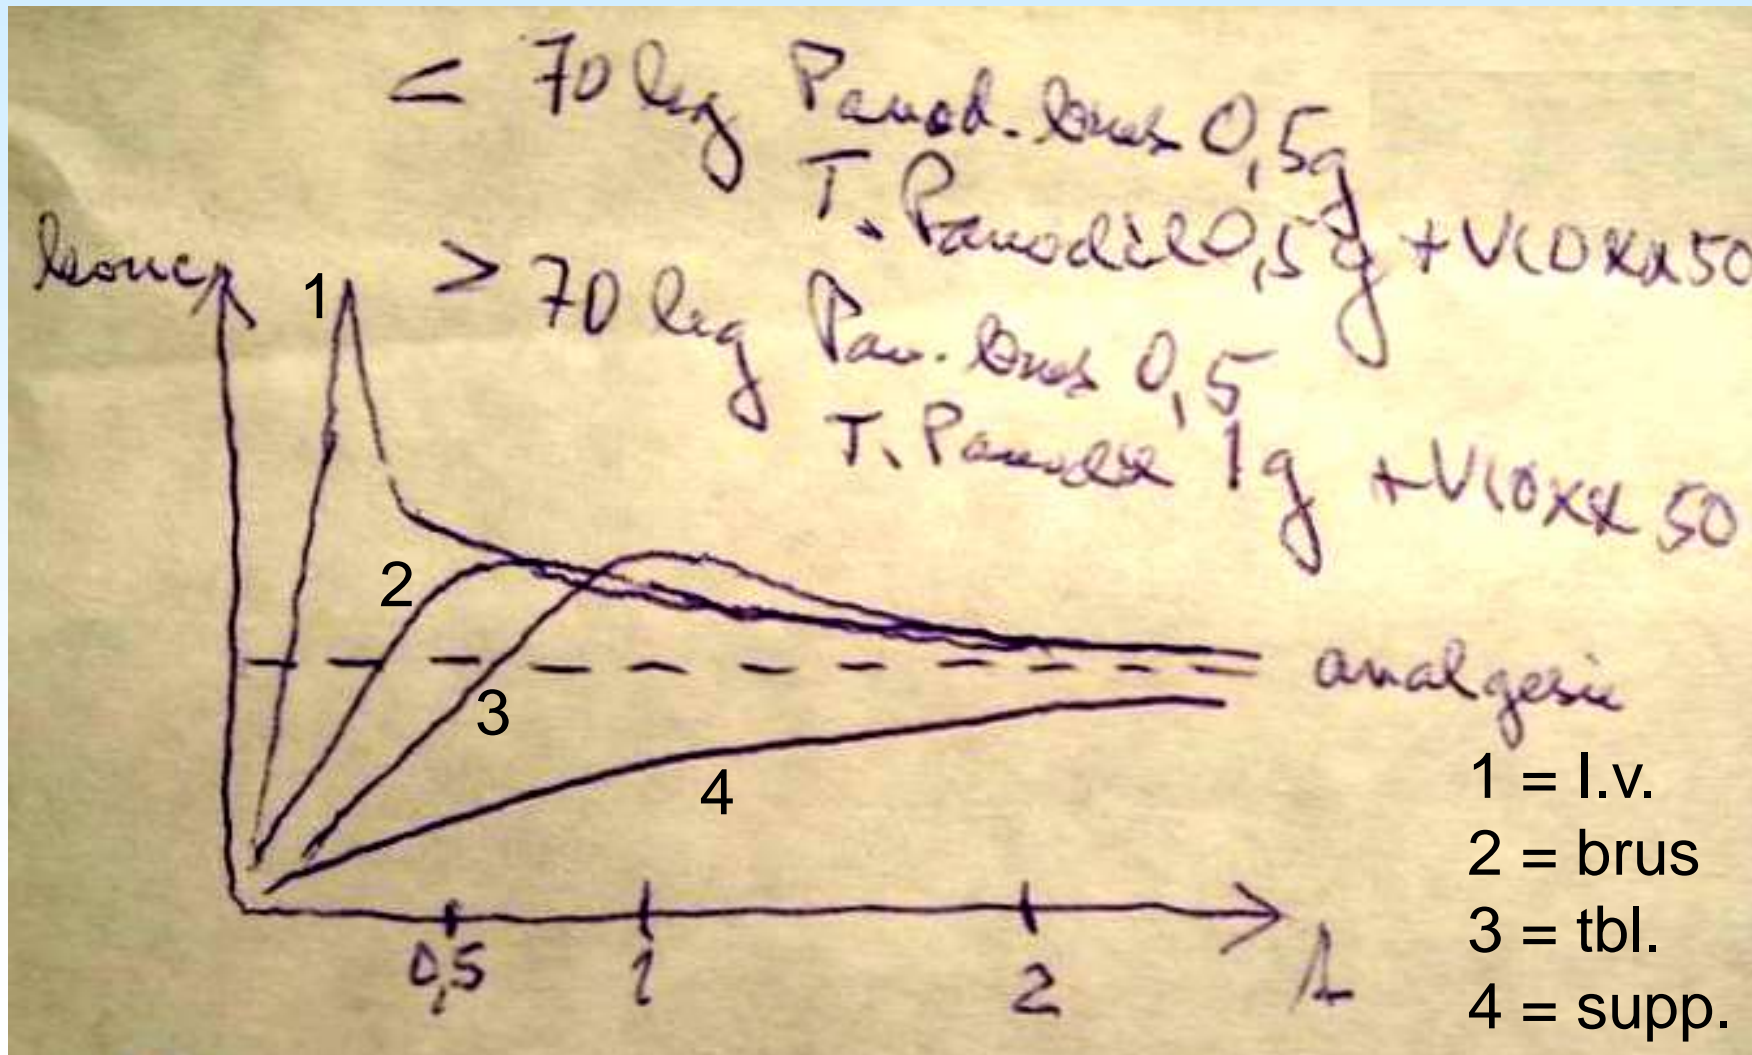 < 70 kg Panod. brus 0,5g
T. Panodil 0,5g + VIOXX 50
> 70 kg Pan. brus 0,5
T. Panodil 1g + VIOXX 50
konc
1
2
3
4
analgesi
0,5 1 2 h
1 = I.v.
2 = brus
3 = tbl.
4 = supp.